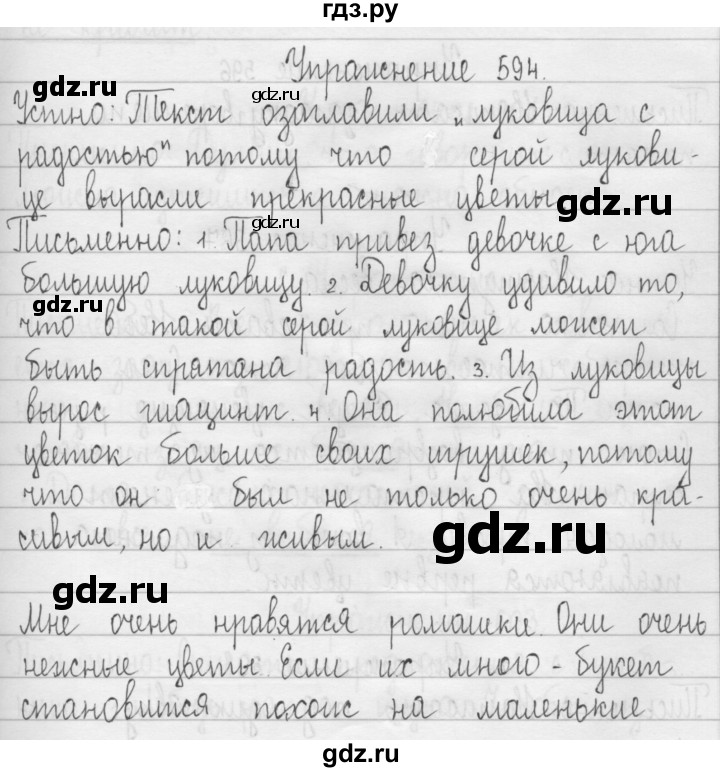 гдз.ру
Упражнение 594.
gdz.ru
gdz.ru
Устно: Текст озаглавили „луковица с
радостью" потому что серой лукови-
це вырасли прекрасные цветы
gdz.ru
Письменно: 1. Папа привез девочке с юга
большую луковицу. 2. Девочку удивило то,
gdz.ru
gdz.ru
что в такой серой луковице может
быть спрятана радость. 3. Из луковицы
вырос гиацинт. 4. Она полюбила этот
цветок больше своих игрушек, потому
что он был не только очень кра-
сивым, но и живым.
gdz.ru
gdz.ru
Мне очень нравятся ромашки. Они очень
нежные цветы. Если их много - букет
gdz.ru
становится похож на маленькие
gdz.ru
гдз.ру